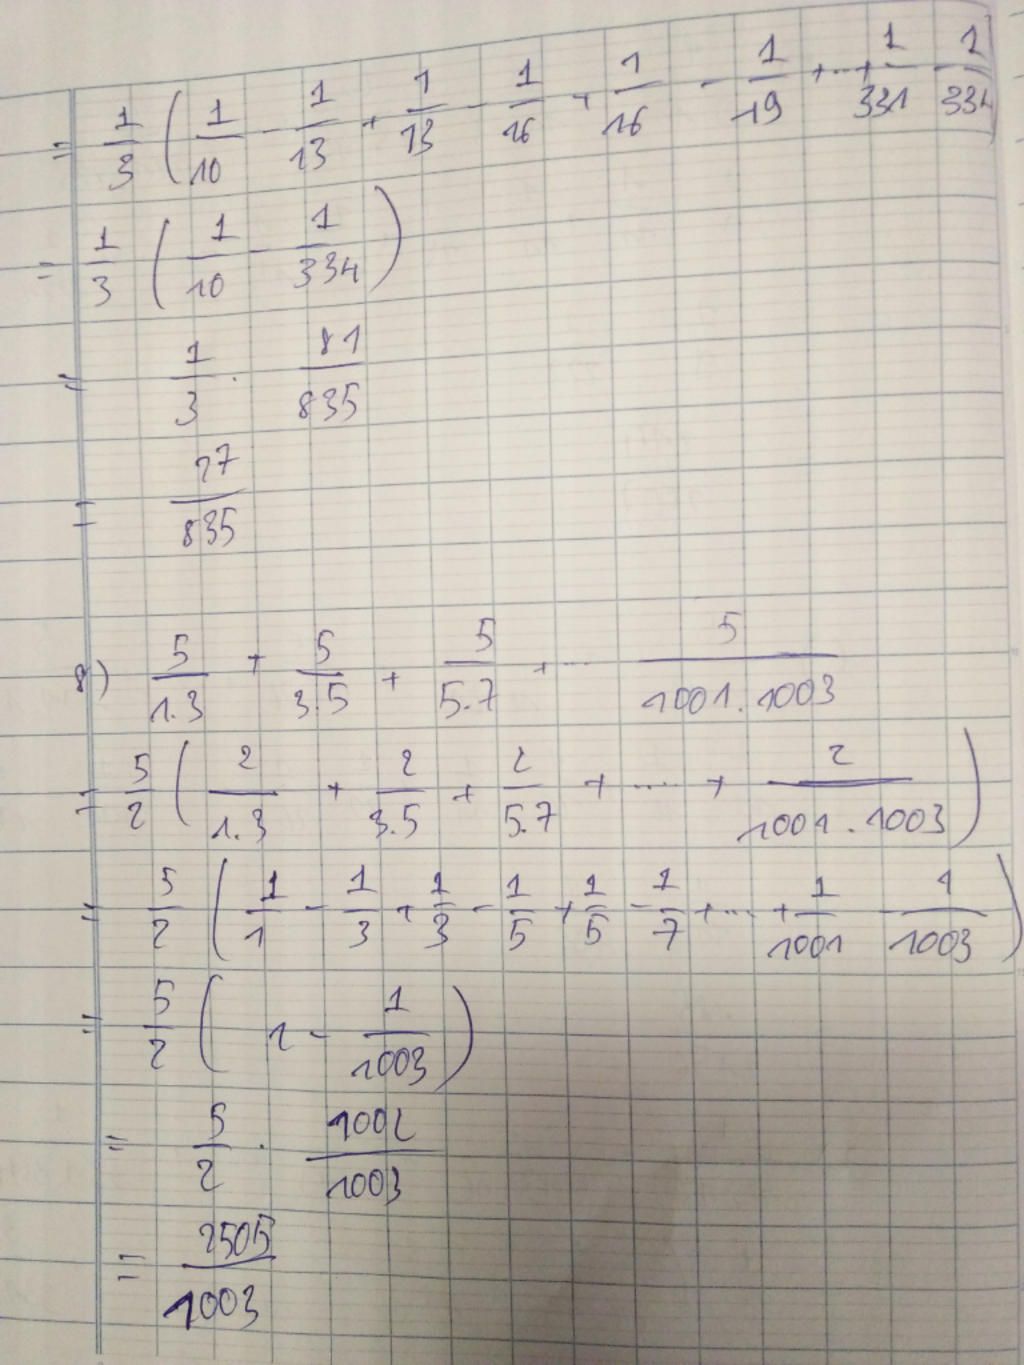 = 1/3 ( 1/10 - 1/13 + 1/13 - 1/16 + 1/16 - 1/19 + ... + 1/331 - 1/334 )
= 1/3 ( 1/10 - 1/334 )
= 1/3 . 81/835
= 27/835
8) 5/1.3 + 5/3.5 + 5/5.7 + ... 5/1001.1003
= 5/2 ( 2/1.3 + 2/3.5 + 2/5.7 + .... + 2/1001.1003 )
= 5/2 ( 1/1 - 1/3 + 1/3 - 1/5 + 1/5 - 1/7 + ... + 1/1001 - 1/1003 )
= 5/2 ( 1 - 1/1003 )
= 5/2 . 1002/1003
= 2505/1003